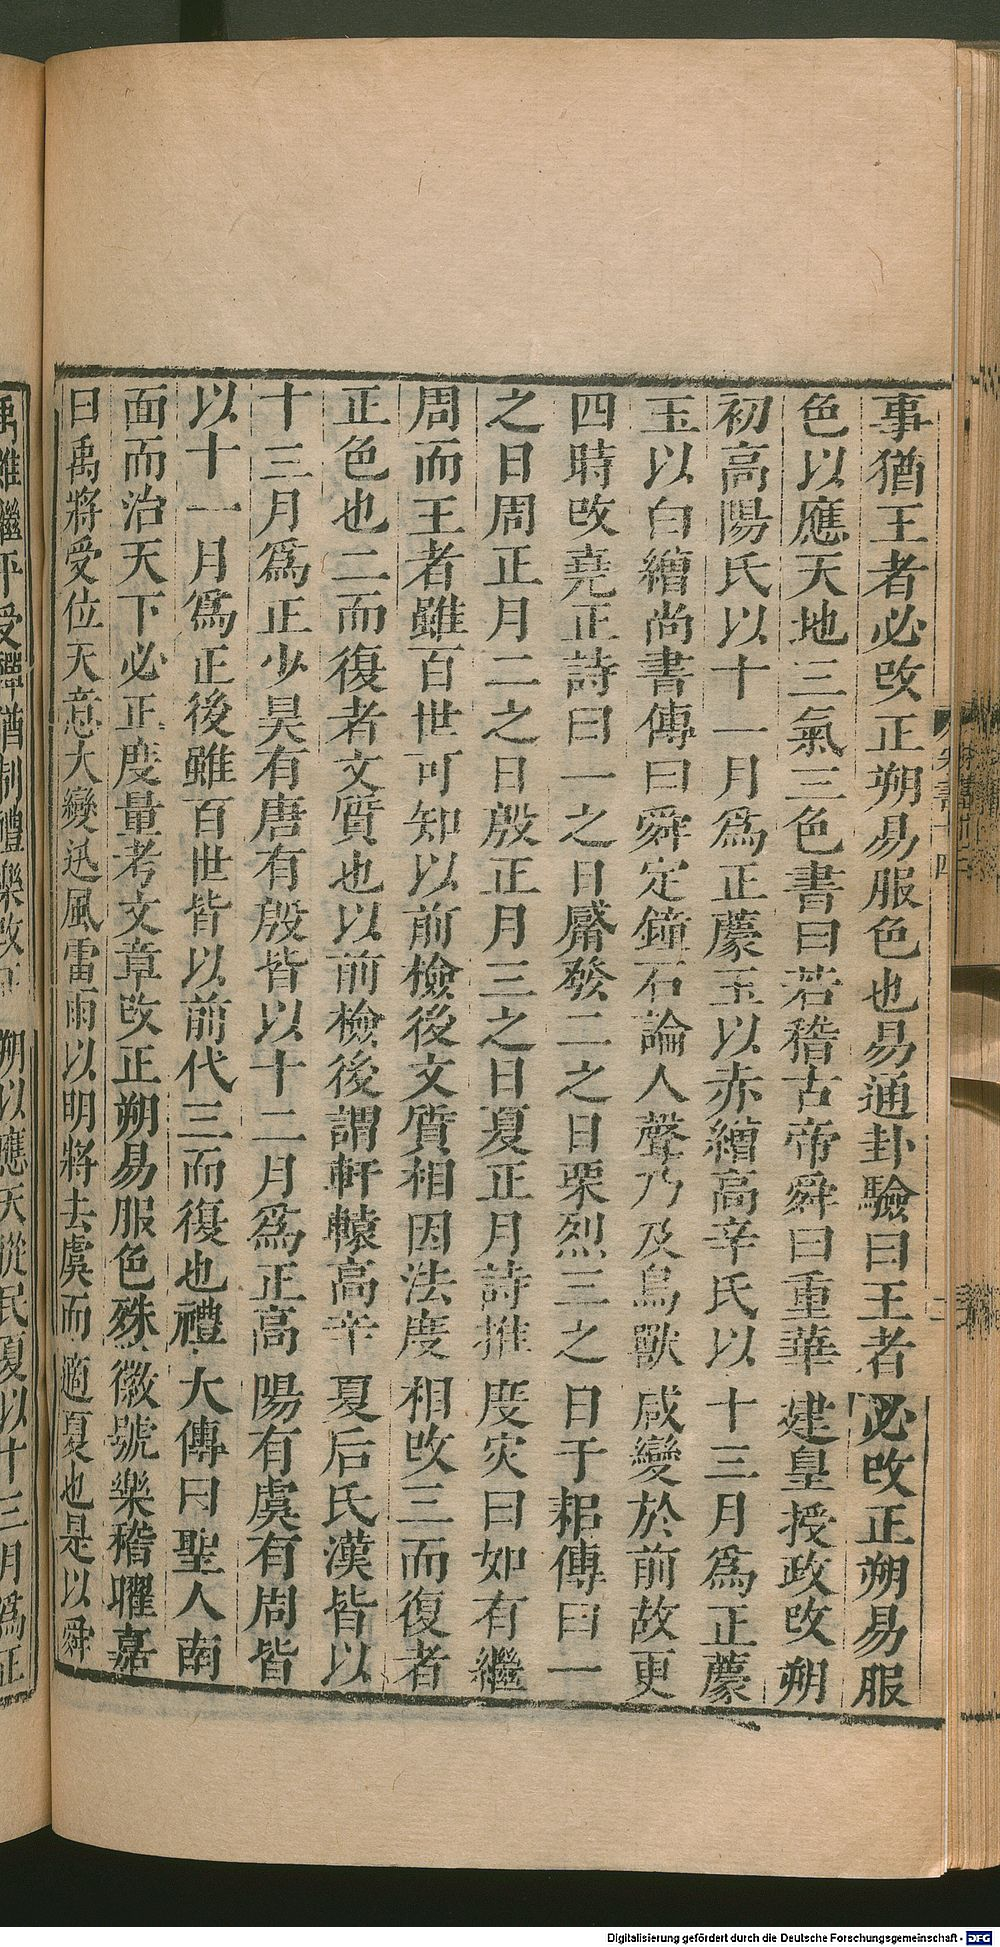 事猶王者必改正朔易服色也易通卦驗曰王者必改正朔易服
色以應天地三氣三色書曰若稽古帝舜曰重華建皇授政改朔
初高陽氏以十一月爲正薦玉以赤繒高辛氏以十三月爲正薦
玉以白繒尚書傳曰舜定鐘石論人聲乃及鳥獸咸變於前故更
四時改堯正詩曰一之日觱發二之日栗烈三之日于耜傳曰一
之日周正月二之日殷正月三之日夏正月詩推度灾曰如有繼
周而王者雖百世可知以前檢後文質相因法度相改三而復者
正色也二而復者文質也以前檢後謂軒轅高辛夏后氏漢皆以
十三月爲正少昊有唐有殷皆以十二月爲正高陽有虞有周皆
以十一月爲正後雖百世皆以前代三而復也禮大傳曰聖人南
面而治天下必正度量考文章改正朔易服色殊徽號樂稽曜嘉
曰禹將受位天意大變迅風雷雨以明將去虞而適夏也是以舜
禹雖繼平受禪猶制禮樂改正朔以應天從民夏以十三月爲正
Digitalisierung gefördert durch die Deutsche Forschungsgemeinschaft - DFG